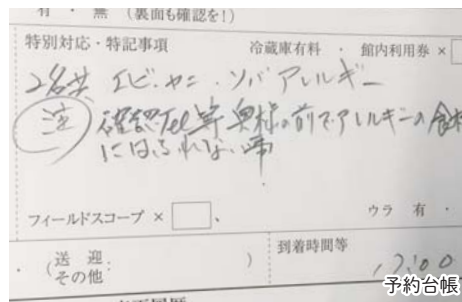 有 ・ 無 （裏面も確認を!）
特別対応・特記事項 冷蔵庫有料 ・ 館内利用券 ×
2名共 エビ・カニ・ソバアレルギー
注 確認Tel等 奥様の前でアレルギーの食材
にはふれない事
フィールドスコープ × 、 ウラ 有 ・
・ （送 迎 ） 到着時間等
その他 17:00
予約台帳